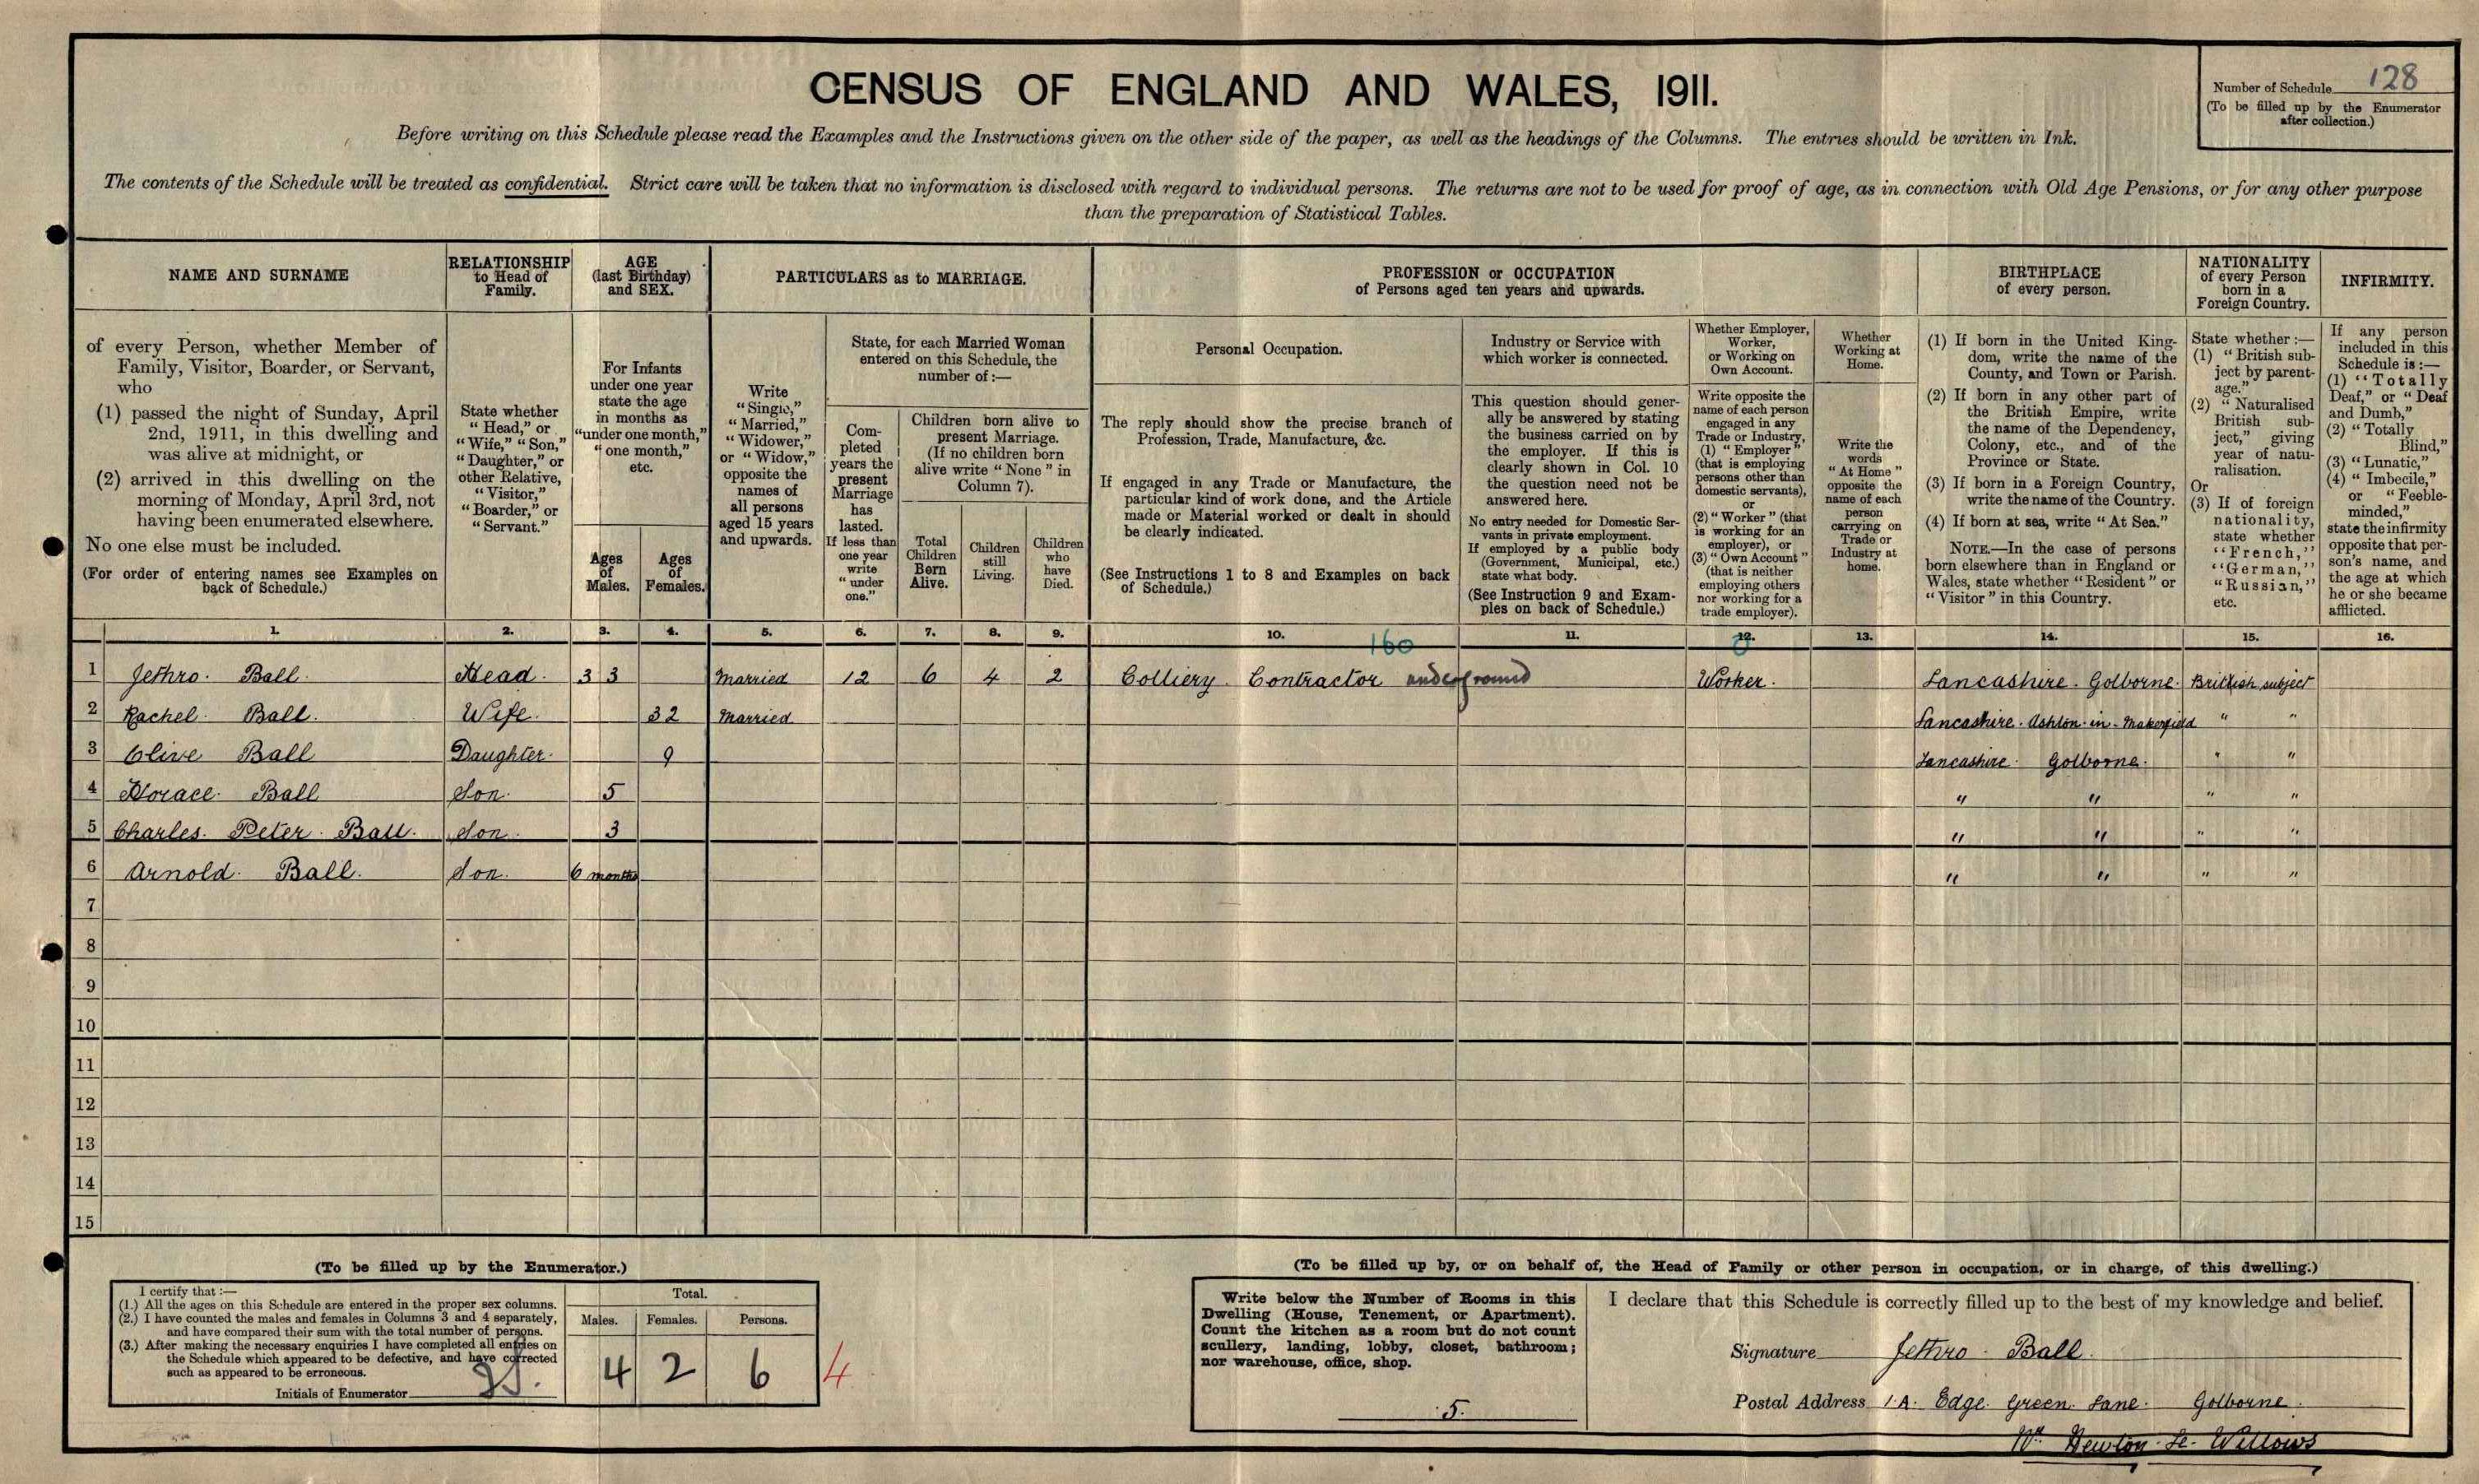 CENSUS OF ENGLAND AND WALES, 1911.
Number of Schedule 128
(To be filled up by the Enumerator
after collection.)
Before writing on this Schedule please read the Examples and the Instructions given on the other side of the paper, as well as the headings of the Columns. The entries should be written in Ink.
The contents of the Schedule will be treated as confidential. Strict care will be taken that no information is disclosed with regard to individual persons. The returns are not to be used for proof of age, as in connection with Old Age Pensions, or for any other purpose
than the preparation of Statistical Tables.
NAME AND SURNAME
of every Person, whether Member of
Family, Visitor, Boarder, or Servant,
who
(1) passed the night of Sunday, April
2nd, 1911, in this dwelling and
was alive at midnight, or
(2) arrived in this dwelling on the
morning of Monday, April 3rd, not
having been enumerated elsewhere.
No one else must be included.
(For order of entering names see Examples on
back of Schedule.)
RELATIONSHIP
to Head of
Family.
State whether
"Head," or
"Wife," "Son,"
"Daughter," or
other Relative,
"Visitor,"
"Boarder," or
"Servant."
AGE
(last Birthday)
and SEX.
For Infants
under one year
state the age
in months as
"under one month,"
"one month,"
etc.
Ages
of
Males.
Ages
of
Females.
PARTICULARS as to MARRIAGE.
Write
"Single,"
"Married,"
"Widower,"
or "Widow,"
opposite the
names of
all persons
aged 15 years
and upwards.
State, for each Married Woman
entered on this Schedule, the
number of:—
Com-
pleted
years the
present
Marriage
has
lasted.
If less than
one year
write
"under
one."
Children born alive to
present Marriage.
(If no children born
alive write "None" in
Column 7).
Total
Children
Born
Alive.
Children
still
Living.
Children
who
have
Died.
PROFESSION or OCCUPATION
of Persons aged ten years and upwards.
Personal Occupation.
The reply should show the precise branch of
Profession, Trade, Manufacture, &c.
If engaged in any Trade or Manufacture, the
particular kind of work done, and the Article
made or Material worked or dealt in should
be clearly indicated.
(See Instructions 1 to 8 and Examples on back
of Schedule.)
Industry or Service with
which worker is connected.
This question should gener-
ally be answered by stating
the business carried on by
the employer. If this is
clearly shown in Col. 10
the question need not be
answered here.
No entry needed for Domestic Ser-
vants in private employment.
If employed by a public body
(Government, Municipal, etc.)
state what body.
(See Instruction 9 and Exam-
ples on back of Schedule.)
Whether Employer,
Worker,
or Working on
Own Account.
Write opposite the
name of each person
engaged in any
Trade or Industry,
(1) "Employer"
(that is employing
persons other than
domestic servants),
or
(2) "Worker" (that
is working for an
employer), or
(3) "Own Account"
(that is neither
employing others
nor working for a
trade employer).
Whether
Working at
Home.
Write the
words
"At Home"
opposite the
name of each
person
carrying on
Trade or
Industry at
home.
BIRTHPLACE
of every person.
(1) If born in the United King-
dom, write the name of the
County, and Town or Parish.
(2) If born in any other part of
the British Empire, write
the name of the Dependency,
Colony, etc., and of the
Province or State.
(3) If born in a Foreign Country,
write the name of the Country.
(4) If born at sea, write "At Sea."
NOTE.—In the case of persons
born elsewhere than in England or
Wales, state whether "Resident" or
"Visitor" in this Country.
NATIONALITY
of every Person
born in a
Foreign Country.
State whether:—
(1) "British sub-
ject by parent-
age."
(2) "Naturalised
British sub-
ject," giving
year of natu-
ralisation.
Or
(3) If of foreign
nationality,
state whether
"French,"
"German,"
"Russian,"
etc.
INFIRMITY.
If any person
included in this
Schedule is:—
(1) "Totally
Deaf," or "Deaf
and Dumb,"
(2) "Totally
Blind,"
(3) "Lunatic,"
(4) "Imbecile,"
or "Feeble-
minded,"
state the infirmity
opposite that per-
son's name, and
the age at which
he or she became
afflicted.
1. 2. 3. 4. 5. 6. 7. 8. 9. 10. 11. 12. 13. 14. 15. 16.
160
1 Jethro. Ball. Head. 33 Married 12 6 4 2 Colliery. Contractor underground Worker. Lancashire. Golborne. British subject
2 Rachel. Ball. Wife. 32 Married Lancashire. Ashton-in-Makerfield " "
3 Olive Ball Daughter. 9 Lancashire. Golborne. " "
4 Horace. Ball Son. 5 " " " "
5 Charles. Peter. Ball. Son. 3 " " " "
6 Arnold. Ball. Son. 6 months " " " "
7
8
9
10
11
12
13
14
15
(To be filled up by the Enumerator.)
I certify that:—
(1.) All the ages on this Schedule are entered in the proper sex columns.
(2.) I have counted the males and females in Columns 3 and 4 separately,
and have compared their sum with the total number of persons.
(3.) After making the necessary enquiries I have completed all entries on
the Schedule which appeared to be defective, and have corrected
such as appeared to be erroneous.
Initials of Enumerator
Total.
Males. Females. Persons.
4 2 6 4
(To be filled up by, or on behalf of, the Head of Family or other person in occupation, or in charge, of this dwelling.)
Write below the Number of Rooms in this
Dwelling (House, Tenement, or Apartment).
Count the kitchen as a room but do not count
scullery, landing, lobby, closet, bathroom;
nor warehouse, office, shop.
5.
I declare that this Schedule is correctly filled up to the best of my knowledge and belief.
Signature Jethro. Ball.
Postal Address 1.A. Edge. Green. Lane. Golborne.
Nr. Newton. Le. Willows